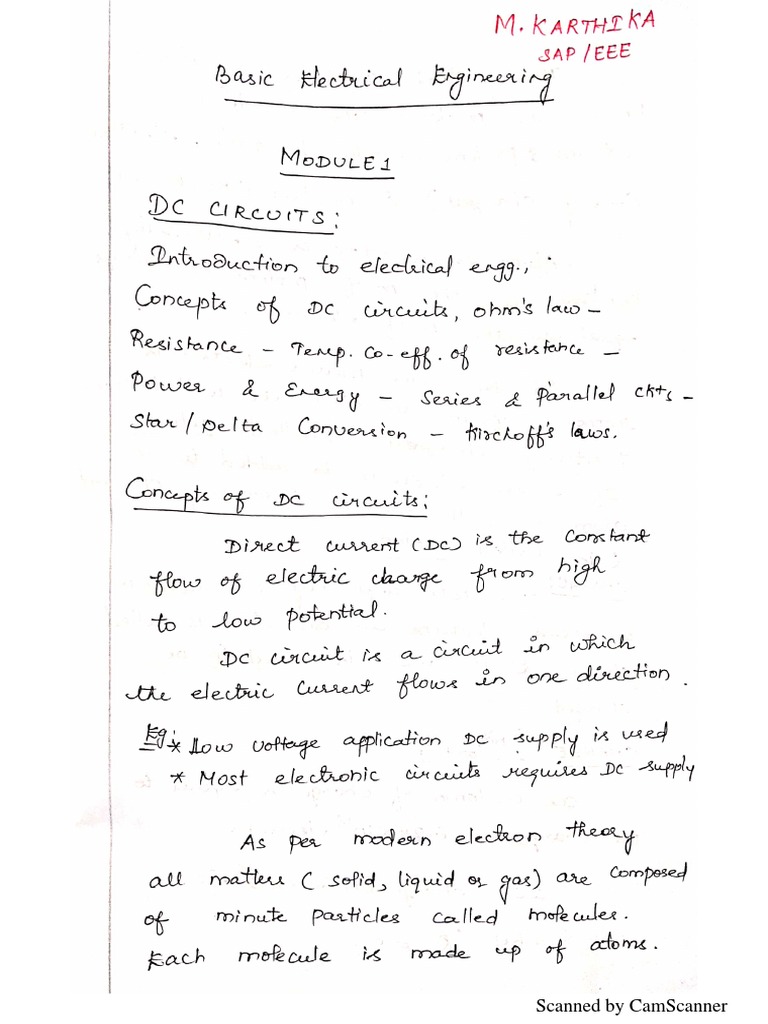 M. KARTHIKA
SAP/EEE
Basic Electrical Engineering
MODULE 1
DC CIRCUITS:
Introduction to electrical engg.,
Concepts of DC circuits, ohm's law -
Resistance - Temp. Co-eff. of resistance -
Power & Energy - Series & Parallel ckts -
Star/Delta Conversion - Kirchoff's laws.
Concepts of DC circuits:
Direct current (DC) is the constant
flow of electric charge from high
to low potential.
DC circuit is a circuit in which
the electric current flows in one direction.
Eg: * Low voltage application DC supply is used
* Most electronic circuits requires DC supply
As per modern electron theory
all matters (solid, liquid or gas) are composed
of minute particles called molecules.
Each molecule is made up of atoms.
Scanned by CamScanner